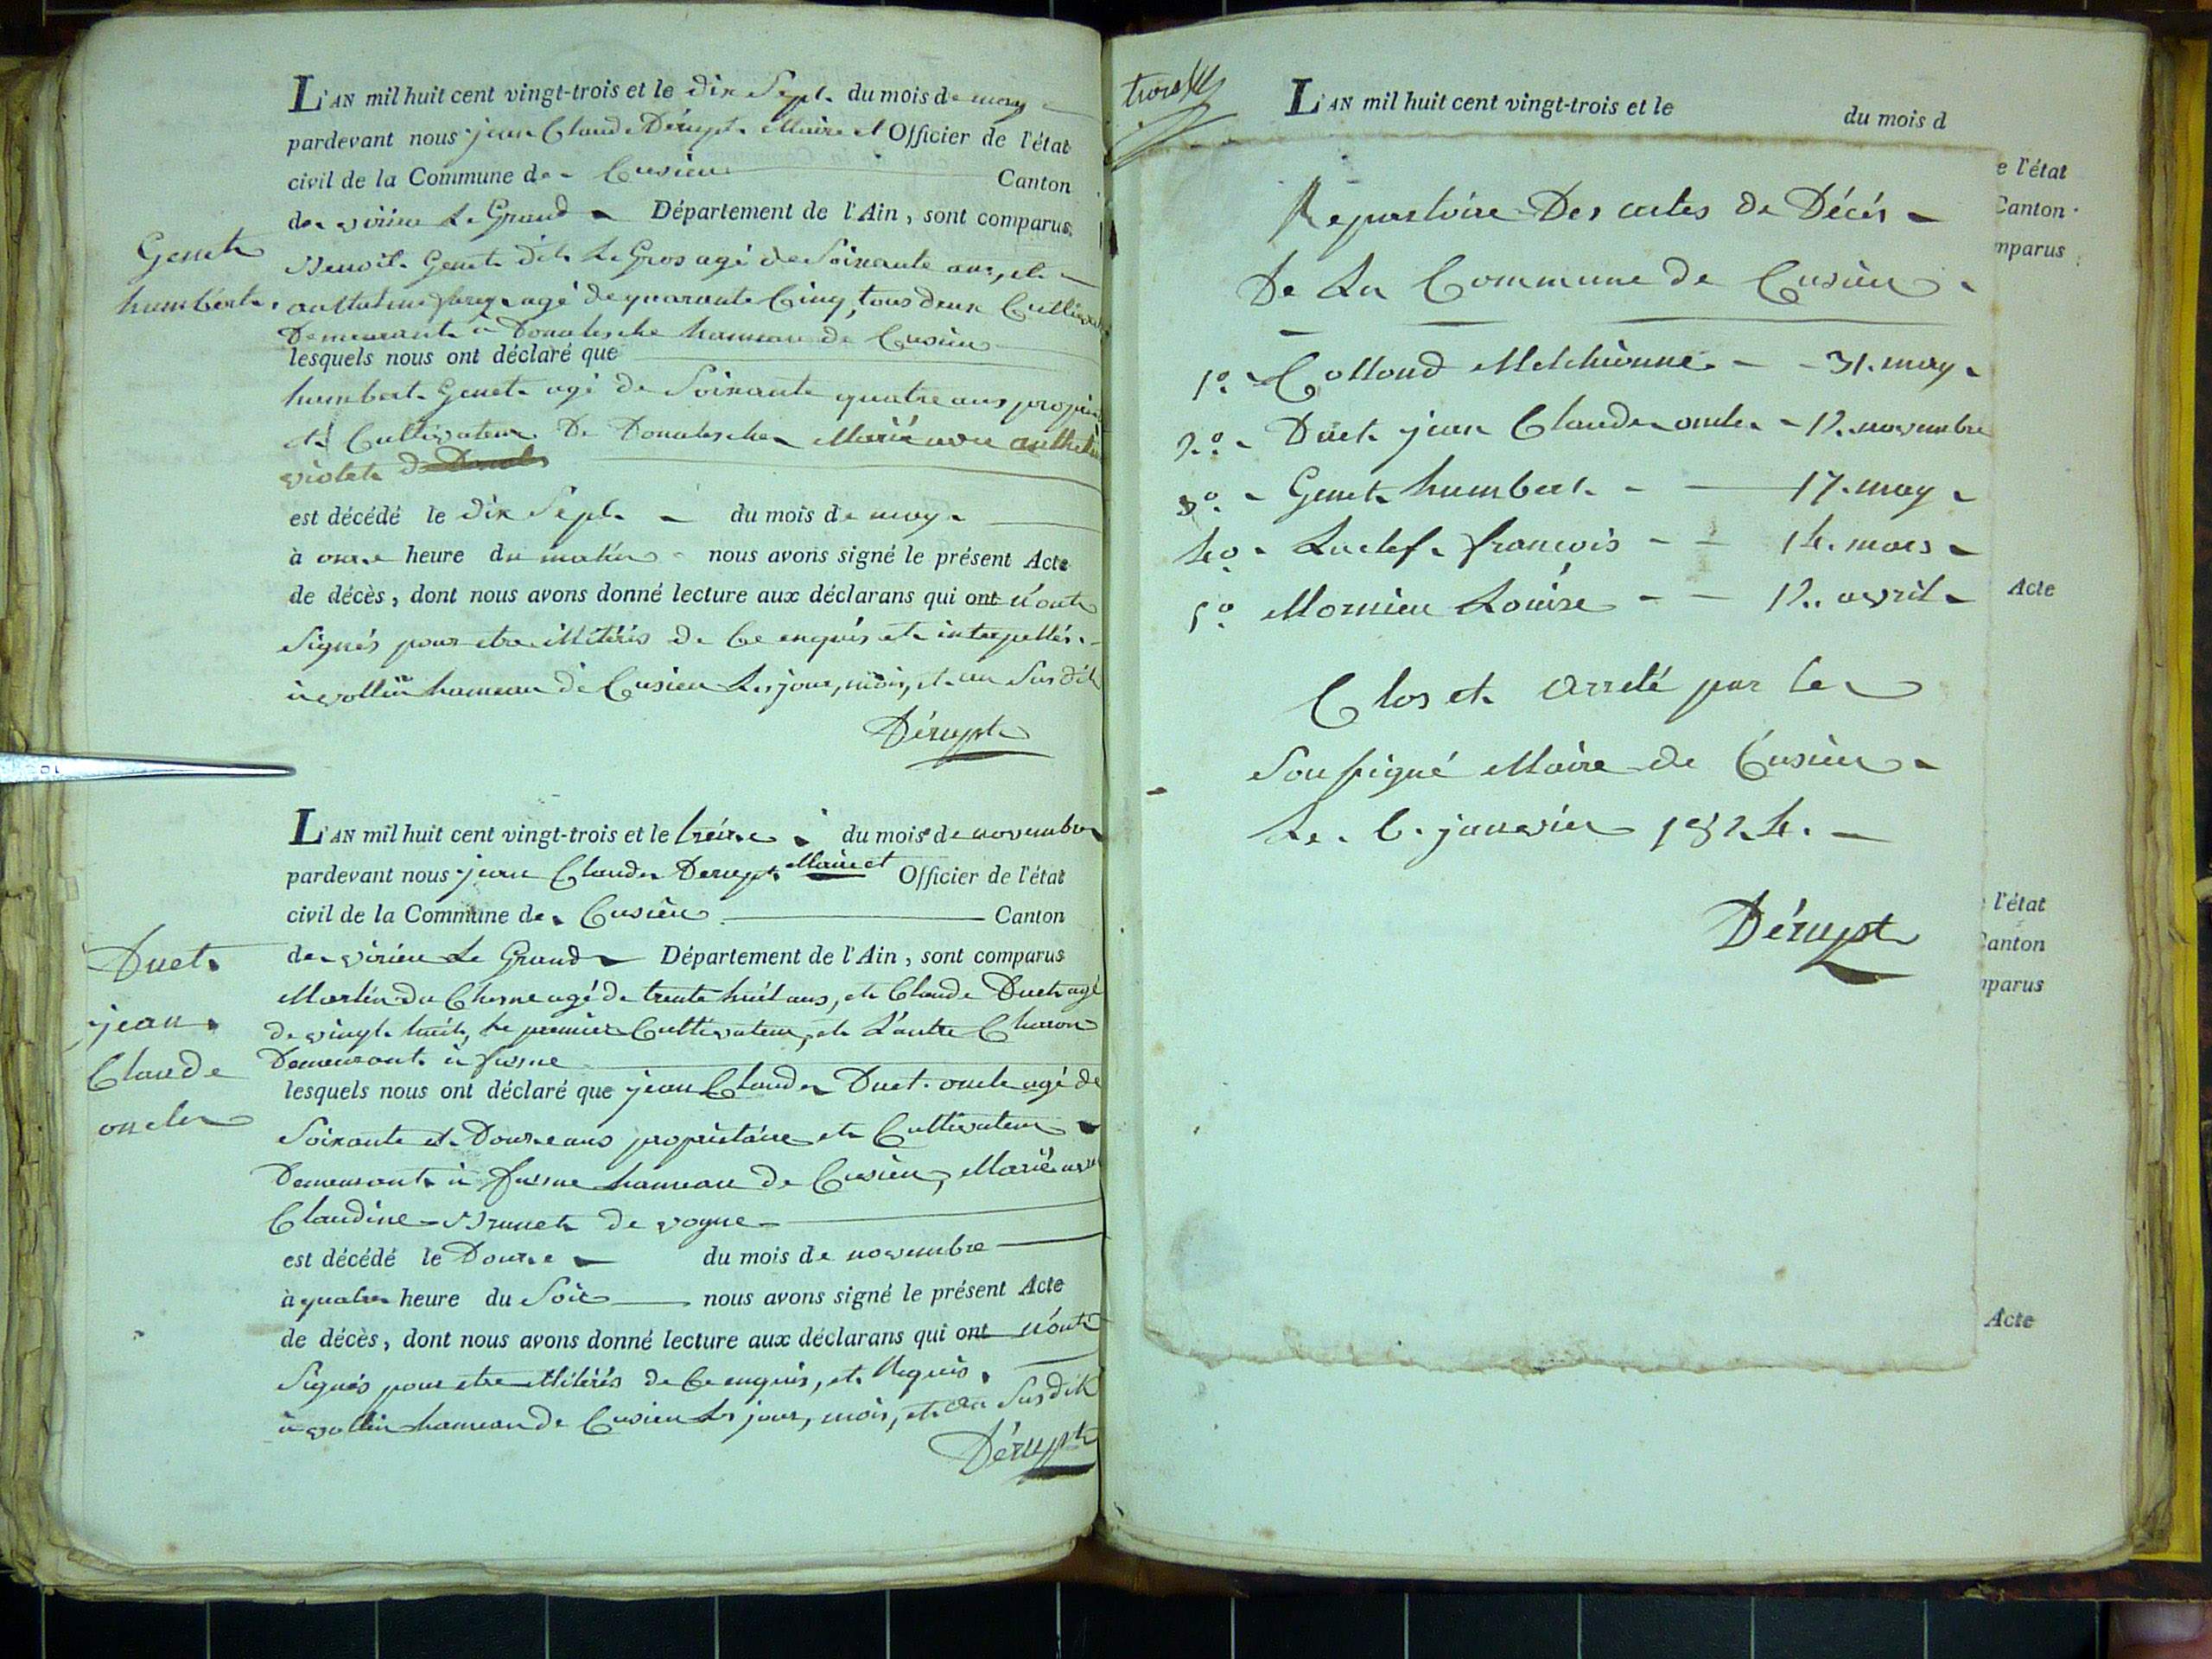 L'AN mil huit cent vingt-trois et le dix Sept. du mois de may
pardevant nous jean Claude Dérupt. Maire et Officier de l'état
civil de la Commune de Cusieu Canton
de virieu Le Grand Département de l'Ain, sont comparus
Genet
humbert.
Benoit Genet dit Le Gros agé de Soixante ans, et
agé de quarante Cinq, tous deux
Demeurant à hameau de Cusieu
lesquels nous ont déclaré que
humbert Genet agé de Soixante quatre ans
et Cultivateur De Marié avec
violet
est décédé le dix Sept. du mois de may
à onze heure du matin nous avons signé le présent Acte
de décès, dont nous avons donné lecture aux déclarans qui ont n'ont
Signés pour etre illitérés de Ce enquis et interpellés.
à vollin hameau de Cusieu Les jour, mois, et an Susdit
Dérupt
L'AN mil huit cent vingt-trois et le treize du mois de novembre
pardevant nous jean Claude Derupt. Maire et Officier de l'état
civil de la Commune de Cusieu Canton
de virieu Le Grand Département de l'Ain, sont comparus
Duet
jean
Claude
oncle
Martin Du Chesne agé de trente huit ans, et Claude Duet agé
de vingt huit, Le premier Cultivateur, et L'autre Charon
Demeurant à
lesquels nous ont déclaré que jean Claude Duet. oncle agé de
Soixante et Douze ans propriétaire et Cultivateur
Demeurant à hameau de Cusieu, Marié avec
Claudine Brunet de vogne
est décédé le Douze du mois de novembre
à quatre heure du Soir nous avons signé le présent Acte
de décès, dont nous avons donné lecture aux déclarans qui ont n'ont
Signés pour etre illitérés de Ce enquis, et Requis.
à vollin hameau de Cusieu Les jour, mois, et an Susdit
Dérupt
L'AN mil huit cent vingt-trois et le
du mois d
e l'état
Canton
mparus
Repertoire Des actes de Décés
De La Commune de Cusieu
1.° Collond Melchionne 31. may
2.° Duet jean Claude oncle 12. novembre
3.° Genet humbert 17. may
4.° françois 14. mars
5.° Mornieu Louise 12. avril
Acte
Clos et arreté par le
Soussigné Maire de Cusieu
Le 6. janvier 1824.
Dérupt
l'état
Canton
mparus
Acte